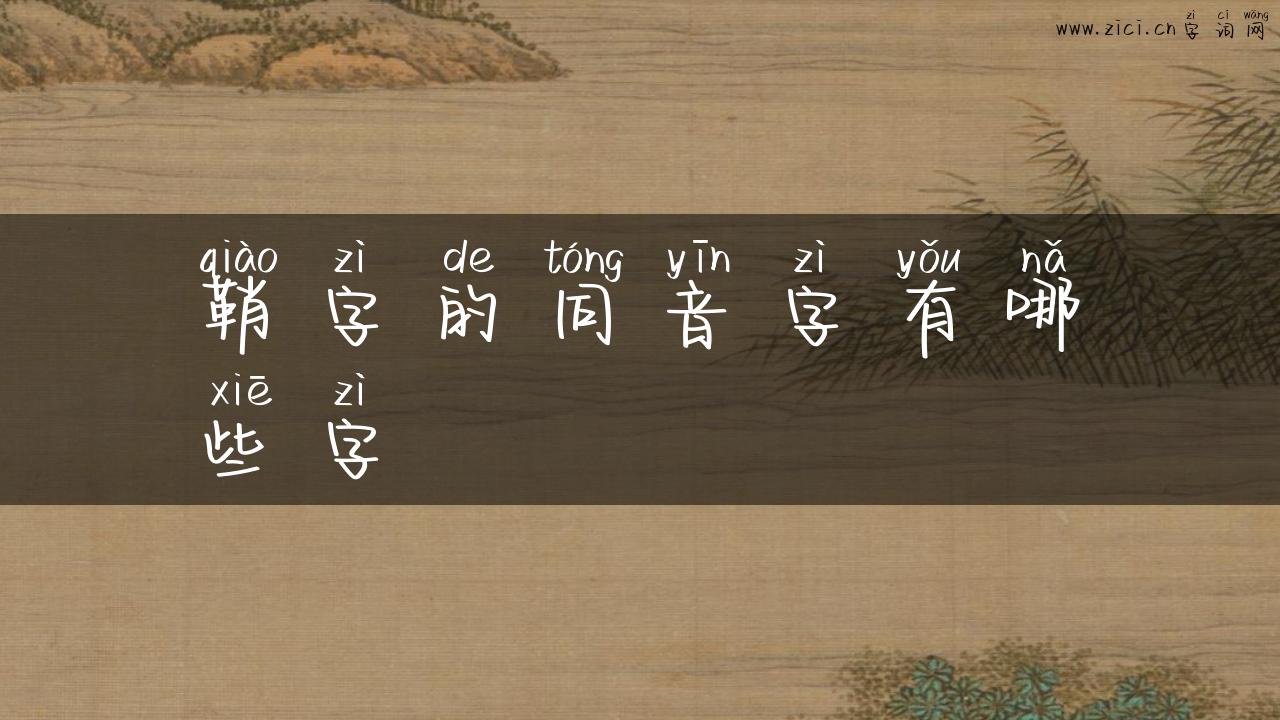 zì cí wǎng
www.zici.cn字词网
qiào zì de tóng yīn zì yǒu nǎ
鞘字的同音字有哪
xiē zì
些字